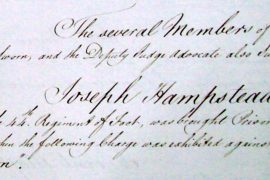 The several Members of
sworn, and the Deputy Judge Advocate also
Joseph Hampstead
44th Regiment of Foot, was brought Prison
the following Charge was exhibited against